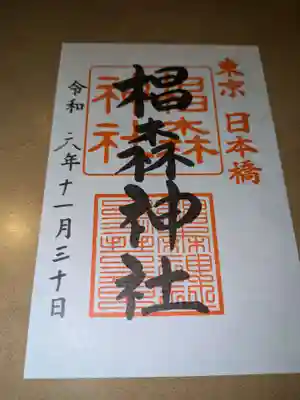 東京 日本橋
椙森神社
椙森
神社
令和 六年十一月三十日